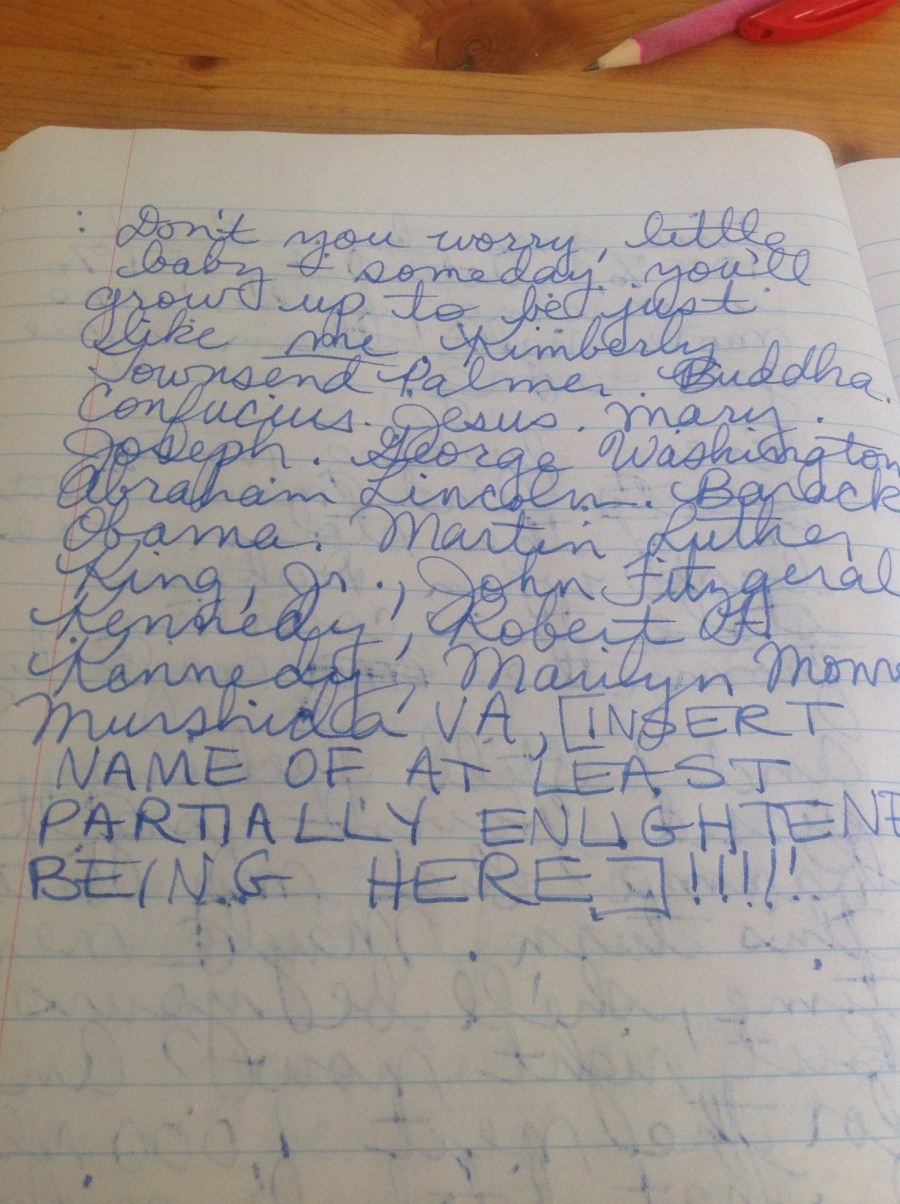 : Don't you worry, little
baby - someday, you'll
grow up to be just
like me Kimberly
Townsend Palmer. Buddha.
Confucius. Jesus. Mary.
Joseph. George Washington
Abraham Lincoln. Barack
Obama. Martin Luther
King, Jr., John Fitzgeral
Kennedy, Robert F.
Kennedy, Marilyn Monr
Murshida VA, [INSERT
NAME OF AT LEAST
PARTIALLY ENLIGHTENE
BEING HERE]!!!!!!